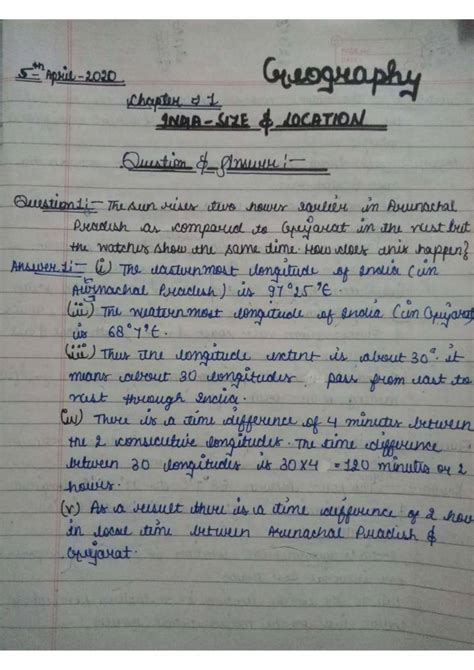 5th April-2020
Geography
Chapter 1
INDIA-SIZE & LOCATION
Question & Answer:-
Question1:- The sun rises two hours earlier in Arunachal
Pradesh as compared to Gujarat in the west but
the watches show the same time. How does this happen?
Answer1:- (i) The easternmost longitude of India (in
Arunachal Pradesh) is 97°25'E.
(ii) The westernmost longitude of India (in Gujarat)
is 68°7'E.
(iii) Thus the longitude extent is about 30°. it
means about 30 longitudes pass from east to
west through India.
(iv) There is a time difference of 4 minutes between
the 2 consecutive longitudes. The time difference
between 30 longitudes is 30x4 = 120 minutes or 2
hours.
(v) As a result there is a time difference of 2 hou
in local time between Arunachal Pradesh &
Gujarat.